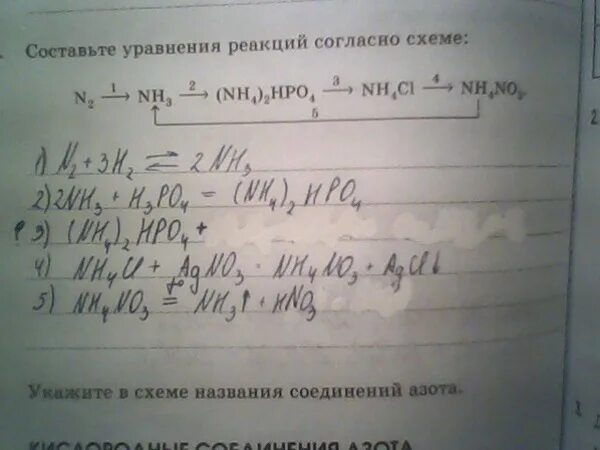 Составьте уравнения реакций согласно схеме:
N₂ —1→ NH₃ —2→ (NH₄)₂HPO₄ —3→ NH₄Cl —4→ NH₄NO₃
5
1) N₂ + 3H₂ ⇌ 2NH₃
2) 2NH₃ + H₃PO₄ = (NH₄)₂HPO₄
3) (NH₄)₂HPO₄ +
4) NH₄Cl + AgNO₃ - NH₄NO₃ + AgCl↓
5) NH₄NO₃ t° = NH₃↑ + HNO₃
Укажите в схеме названия соединений азота.
КИСЛОРОДНЫЕ СОЕДИНЕНИЯ АЗОТА
2